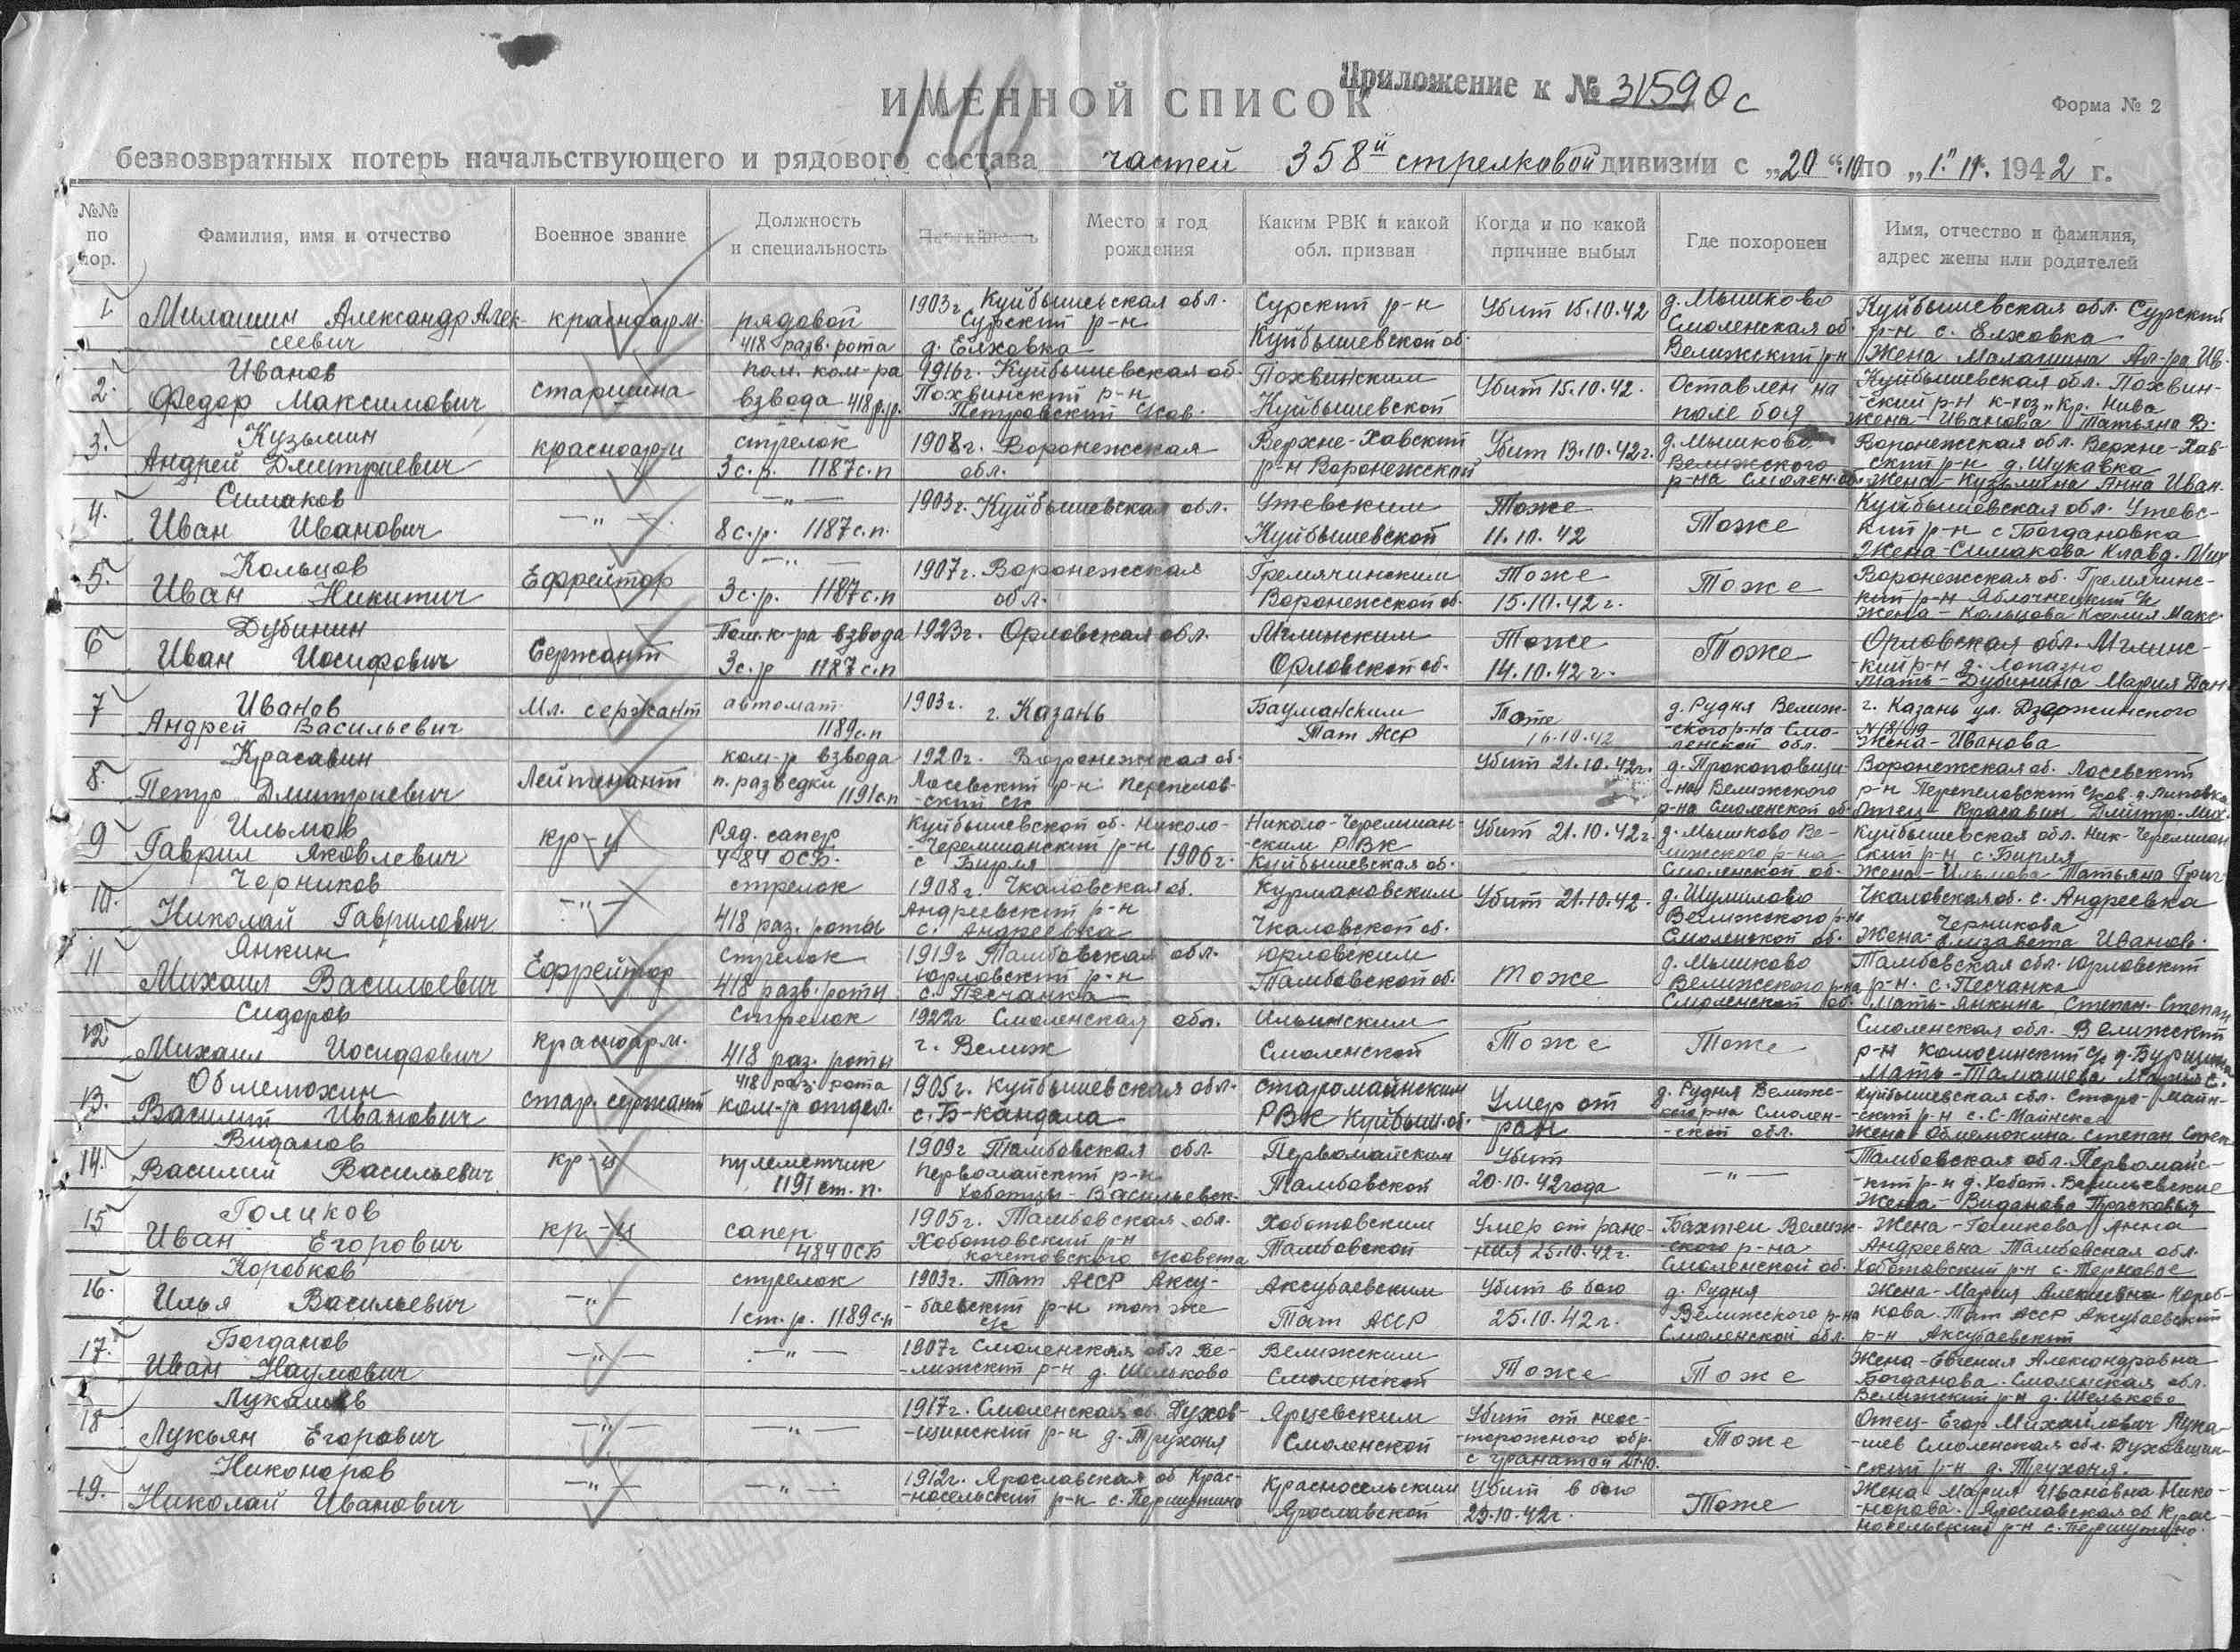 Приложение к № 31590с
ИМЕННОЙ СПИСОК
Форма № 2
безвозвратных потерь начальствующего и рядового состава частей 358й стрелковой дивизии с „20“.10 по „1.“ 11. 1942 г.
№№ по пор. | Фамилия, имя и отчество | Военное звание | Должность и специальность | Партийность | Место и год рождения | Каким РВК и какой обл. призван | Когда и по какой причине выбыл | Где похоронен | Имя, отчество и фамилия, адрес жены или родителей
1. Милашин Александр Алексеевич | красноарм. | рядовой 418 разв. рота | 1903г Куйбышевская обл. Сурский р-н д. Елховка | Сурский р-н Куйбышевской об. | Убит 15.10.42 | д. Мышково Смоленская об. Велижский р-н | Куйбышевская обл. Сурский р-н с. Елховка Жена Малашина Ал-ра Ив.
2. Иванов Федор Максимович | старшина | пом. ком-ра взвода 418 р.р. | 1916г. Куйбышевская об. Похвинский р-н Петровский с/сов. | Похвинским Куйбышевской | Убит 15.10.42. | Оставлен на поле боя | Куйбышевская обл. Похвин-ский р-н к-хоз „Кр. Нива Жена - Иванова Татьяна В.
3. Кузьмин Андрей Дмитриевич | красноарм | стрелок 3с.р. 1187с.п | 1908г. Воронежская обл. | Верхне-Хавский р-н Воронежской | Убит 13.10.42г. | д. Мышково Велижского р-на Смолен. об. | Воронежская обл. Верхне-Хав-ский р-н д. Шукавка Жена - Кузьмина Анна Иван.
4. Симаков Иван Иванович | —„— | —„— 8с.р. 1187с.п. | 1903г. Куйбышевская обл. | Утевским Куйбышевской | Тоже 11.10.42 | Тоже | Куйбышевская обл. Утевс-кий р-н с Богдановка Жена - Симакова Клавд. Мих
5. Кольцов Иван Никитич | Ефрейтор | —„— 3с.р. 1187с.п | 1907г. Воронежская обл. | Гремячинским Воронежской об. | Тоже 15.10.42г. | Тоже | Воронежская об. Гремячинс-кий р-н Яблочнецкий с/с Жена - Кольцова Ксения Макс
6 Дубинин Иван Иосифович | Сержант | Пом. к-ра взвода 3с.р 1187с.п | 1923г. Орловская обл. | Мглинским Орловской об. | Тоже 14.10.42г. | Тоже | Орловская обл. Мглинс-кий р-н д. Лопазно Мать - Дубинина Мария Дан.
7 Иванов Андрей Васильевич | Мл. сержант | автомат. 1189с.п | 1903г. г. Казань | Бауманским Тат АССР | Тоже 16.10.42 | д. Рудня Велиж-ского р-на Смо-ленской обл. | г. Казань ул. Дзержинского Жена - Иванова
8. Красавин Петр Дмитриевич | Лейтенант | ком-р взвода п. разведки 1191с.п | 1920г. Воронежская об. Лосевский р-н Перепелов-ский с/с | Убит 21.10.42г. | д. Прокоповщи-на Велижского р-на Смоленской об. | Воронежская об. Лосевский р-н Перепеловский с/сов. д. Липовка Отец - Красавин Дмитр. Мих.
9 Ильмов Гаврил Яковлевич | кр-ц | Ряд. сапер 484 ОСБ. | Куйбышевской об. Николо-Черемшанский р-н с Бирля 1906г. | Николо-Черемшан-ским РВК Куйбышевская об. | Убит 21.10.42г. | д. Мышково Ве-лижского р-на Смоленской об. | Куйбышевская обл. Ник-Черемшан ский р-н с. Бирля Жена - Ильмова Татьяна Григ
10. Черников Николай Гаврилович | —„— | стрелок 418 раз. роты | 1908г. Чкаловская об. Андреевский р-н с. Андреевка | Курмановским Чкаловской об. | Убит 21.10.42. | д. Шумилово Велижского р-на Смоленской об. | Чкаловская об. с. Андреевка Жена - Черникова Елизавета Иванов.
11 Янкин Михаил Васильевич | Ефрейтор | стрелок 418 разв. роты | 1919г Тамбовская обл. Юрловский р-н с. Песчанка | Юрловским Тамбовской об. | Тоже | д. Мышково Велижского р-на Смоленской об. | Тамбовская обл. Юрловский р-н. с. Песчанка Мать - Янкина Степан. Степан
12 Сидоров Михаил Иосифович | красноарм. | Стрелок 418 раз. роты | 1922г Смоленская обл. г. Велиж | Ильинским Смоленской | Тоже | Тоже | Смоленская обл. Велижский р-н Комосинский с/с д. Бурщина Мать - Тамашева Мария С.
13. Облемохин Василий Иванович | стар. сержант | 418 раз. рота ком-р отдел. | 1905г. Куйбышевская обл. с. Б-Кандала | Старомайнским РВК Куйбыш. об. | Умер от ран | д. Рудня Велижс-кого р-на Смолен-ской обл. | Куйбышевская обл. Старо-Майн-ский р-н с. С-Майнское Жена Облемохина Степан Степ
14. Виданов Василий Васильевич | кр-ц | пулеметчик 1191 ст.п. | 1909г Тамбовская обл. Первомайский р-н Хоботцы-Васильевск. | Первомайским Тамбовской | Убит 20.10.42года | —„— | Тамбовская обл. Первомайс-кий р-н д. Хобот. Васильевские Жена - Виданова Прасковья
15 Голиков Иван Егорович | кр-ц | сапер 484 ОСБ | 1905г. Тамбовская обл. Хоботовский р-н кочетовского с/совета | Хоботовским Тамбовской | Умер от ране-ния 25.10.42г. | Бахтеи Велиж-ского р-на Смоленской об. | Жена - Голикова Анна Андреевна Тамбовская обл. Хоботовский р-н с. Терновое
16. Коробков Илья Васильевич | —„— | стрелок 1ст.р. 1189с.п | 1903г. Тат АССР Аксу-баевский р-н тот же с/с | Аксубаевским Тат АССР | Убит в бою 25.10.42г. | д. Рудня Велижского р-на Смоленской обл. | Жена - Мария Алексеевна Короб-кова. Тат АССР Аксубаевский р-н Аксубаевский
17. Богданов Иван Наумович | —„— | —„— | 1907г Смоленская обл Ве-лижский р-н д. Шельково | Велижским Смоленской | Тоже | Тоже | Жена - Евгения Александровна Богданова. Смоленская обл. Велижский р-н д. Шельково
18 Лукашев Лукьян Егорович | —„— | —„— | 1917г. Смоленская об. Духов-щинский р-н д. Трухоня | Ярцевским Смоленской | Убит от неос-торожного обр. с гранатой 21.10. | Тоже | Отец - Егор Михайлович Лука-шев Смоленская обл. Духовщин-ский р-н д. Трухоня.
19. Никоноров Николай Иванович | —„— | —„— | 1912г. Ярославская об Крас-носельский р-н с. Першутино | Красносельским Ярославской | Убит в бою 29.10.42г. | Тоже | Жена - Мария Ивановна Нико-норова. Ярославская об Крас-носельский р-н с. Першутино.